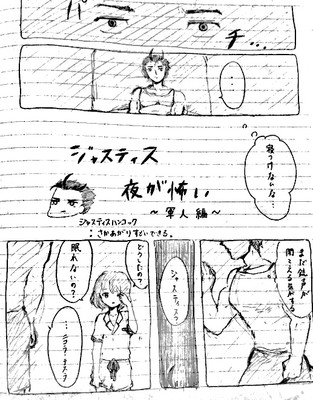 パ
チ…
…
ジャスティス
夜が怖い
～軍人編～
ジャスティスハンコック
：さかあがりすごいできる。
寝つけないな…
まだ銃声が
聞こえる気がする
ジャスティス？
どうしたの？
眠れないの？